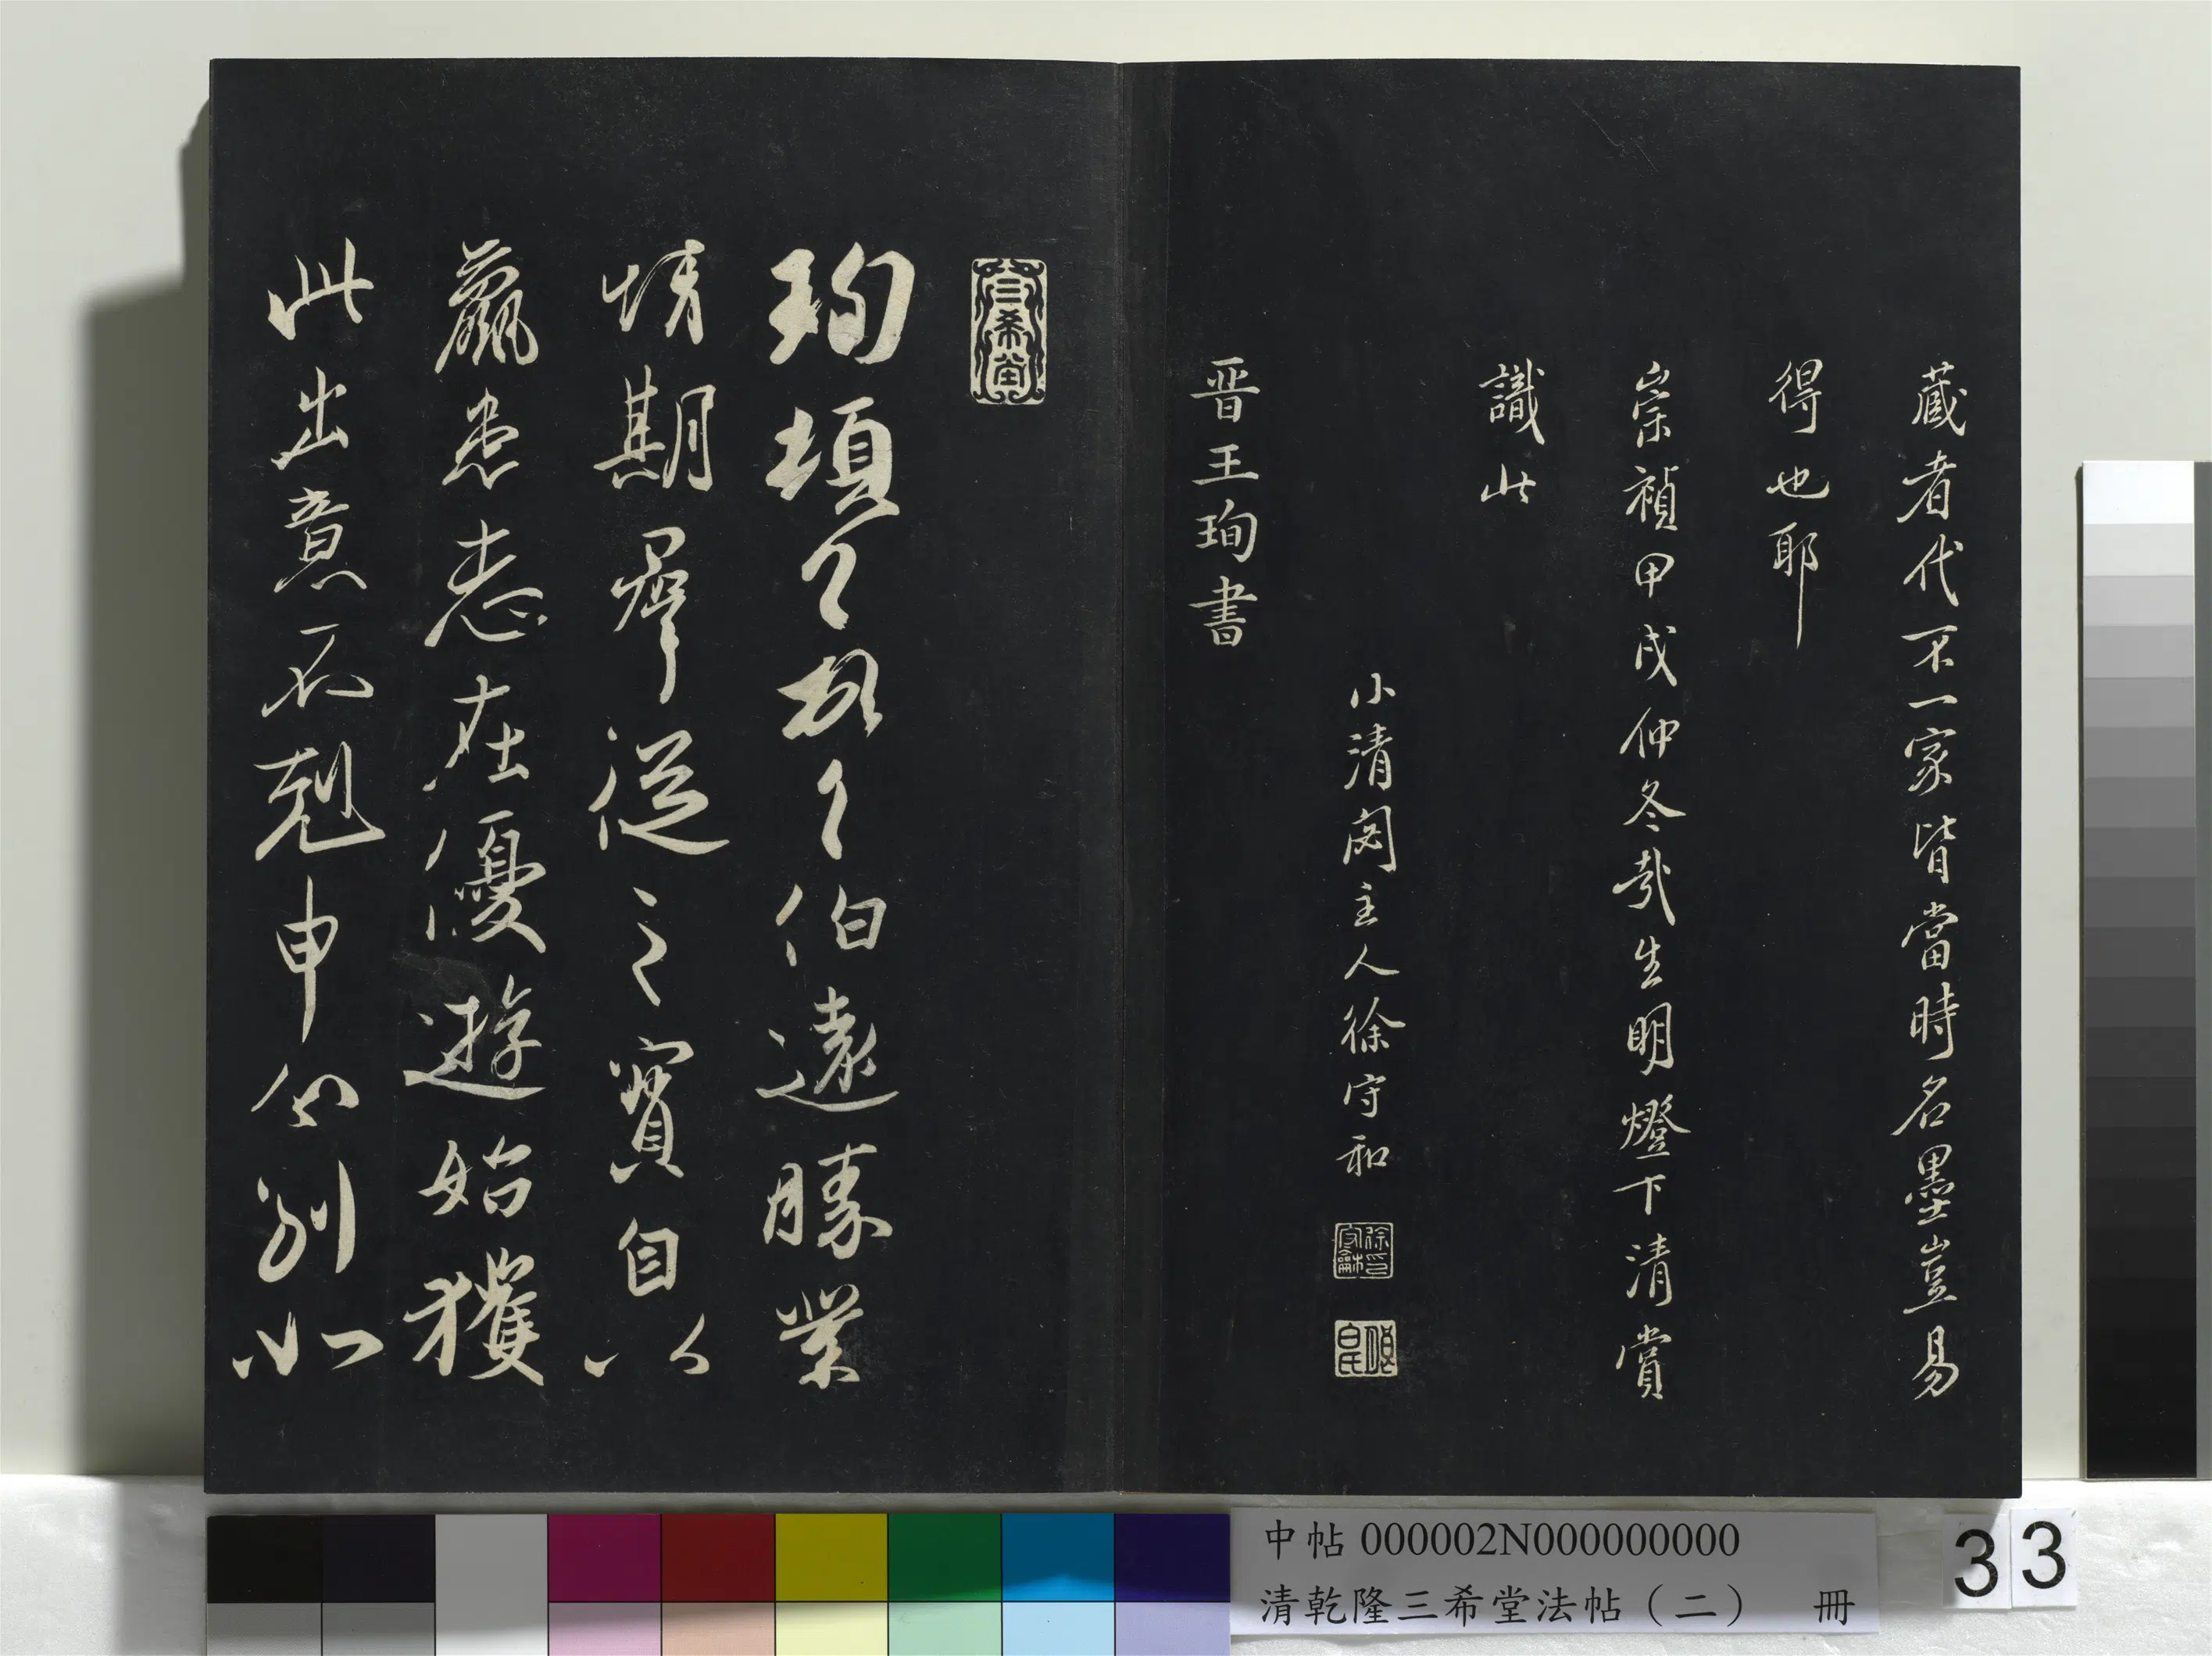 藏者代不一家皆當時名墨豈易
得也耶
崇禎甲戌仲冬哉生明燈下清賞
識此
小清閟主人徐守和
徐印守龢
晋王珣書
三希堂
珣頓首頓首伯遠勝業
情期羣從之寶自以
羸患志在優遊始獲
此出意不剋申分別如
中帖 000002N000000000
清乾隆三希堂法帖（二） 冊
33